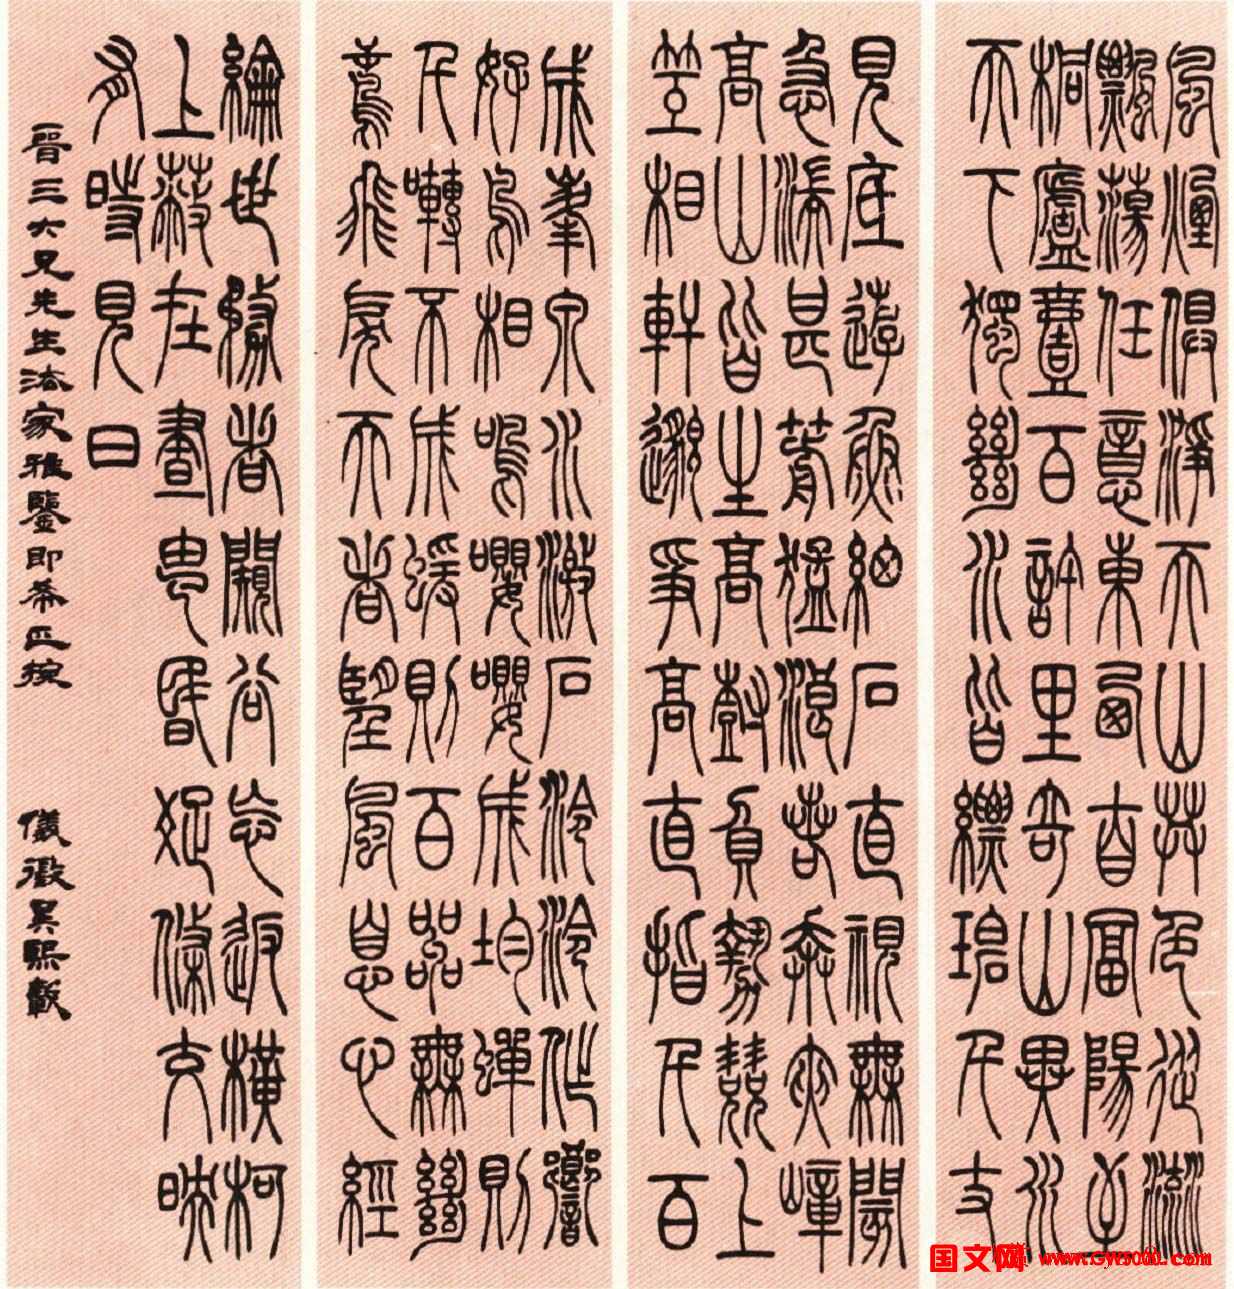 風煙俱淨天山共色從流
飄蕩任意東西自富陽至
桐廬壹百許里奇山異水
天下獨絕水皆縹碧千丈
見底游魚細石直視無閡
急湍甚箭猛浪若奔夾嶂
高山皆生高樹負勢競上
互相軒邈爭高直指千百
成峯泉水激石泠泠作響
好鳥相鳴嚶嚶成均蟬則
千囀不成蝯則百嘂無絕
鳶飛戾天者望風息心經
綸世務者闚谷忘返橫柯
上蔽在晝昏疏條交映
有時見日
晉三大兄先生法家雅鑒即希正捥
儀徵吳熙載
国文网 www.GW5000.com